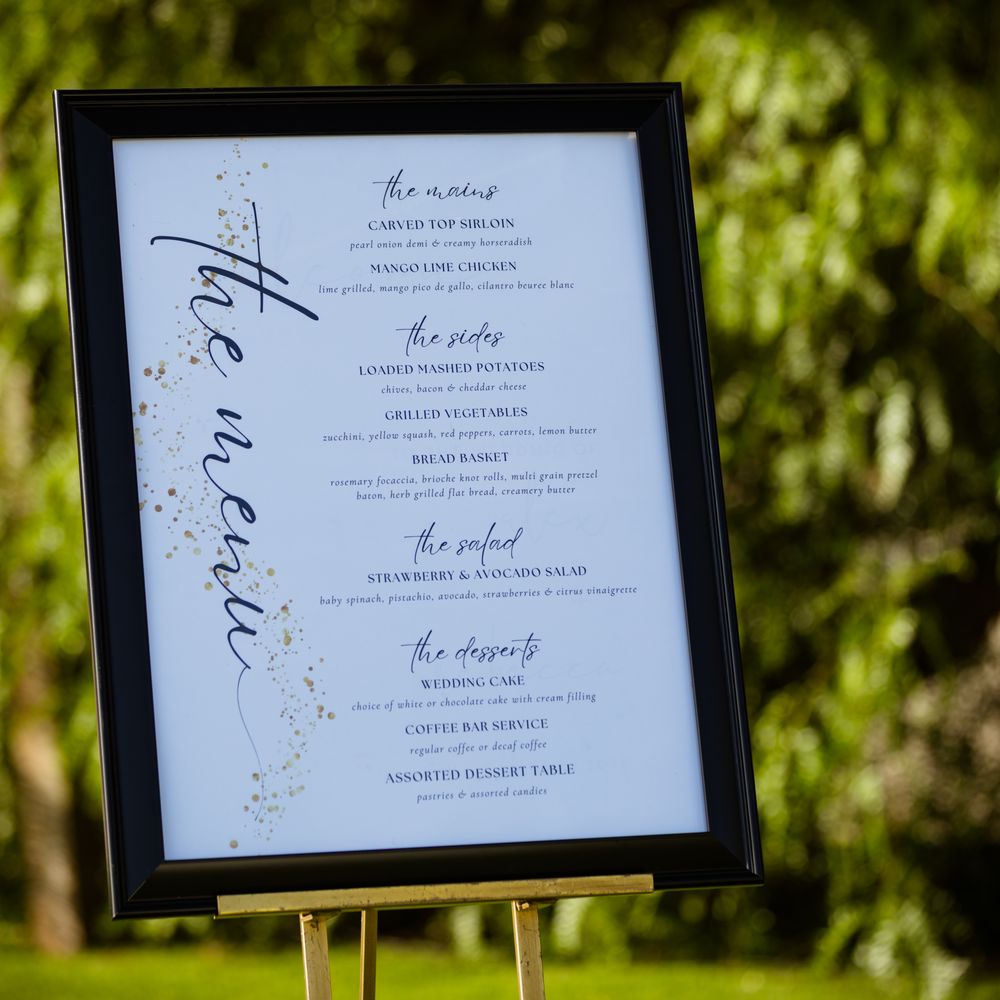 the menu
the mains
CARVED TOP SIRLOIN
pearl onion demi & creamy horseradish
MANGO LIME CHICKEN
lime grilled, mango pico de gallo, cilantro beuree blanc
the sides
LOADED MASHED POTATOES
chives, bacon & cheddar cheese
GRILLED VEGETABLES
zucchini, yellow squash, red peppers, carrots, lemon butter
BREAD BASKET
rosemary focaccia, brioche knot rolls, multi grain pretzel
baton, herb grilled flat bread, creamery butter
the salad
STRAWBERRY & AVOCADO SALAD
baby spinach, pistachio, avocado, strawberries & citrus vinaigrette
the desserts
WEDDING CAKE
choice of white or chocolate cake with cream filling
COFFEE BAR SERVICE
regular coffee or decaf coffee
ASSORTED DESSERT TABLE
pastries & assorted candies